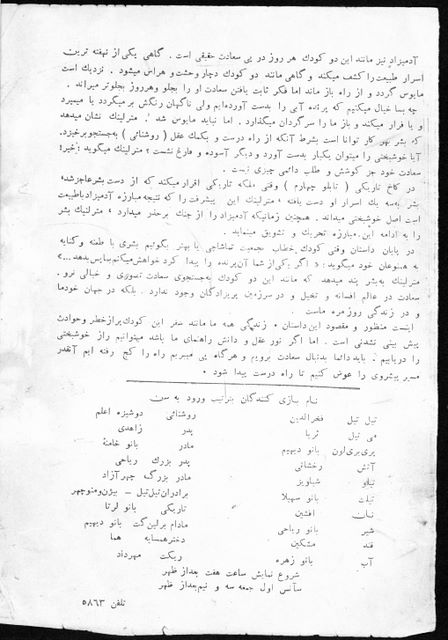 آدمیزاد نیز مانند این دو کودك هر روز در پی سعادت حقیقی است . گاهی یکی از نهفته ترین
اسرار طبیعت را کشف میکند و گاهی مانند دو کودك دچار وحشت و هراس میشود . نزدیك است
مایوس گردد و از راه باز ماند اما فکر ثابت یافتن سعادت او را بجلو و هر روز بجلوتر میراند .
چه بسا خیال میکنیم که پرنده آبی را بدست آورده‌ایم ولی ناگهان رنگش بر میگردد یا میمیرد
و یا فرار میکند و باز ما را سرگردان میگذارد . اما نباید مایوس شد . مترلینك نشان میدهد
که بشر بهر کار توانا است بشرط آنکه از راه درست و بکمك عقل ( روشنائی ) به جستجو برخیزد.
آیا خوشبختی را میتوان یکبار بدست آورد و دیگر آسوده و فارغ نشست ؟ مترلینك میگوید : خیر!
سعادت خود جز کوشش و طلب دائمی چیزی نیست .
در کاخ تاریکی ( تابلو چهارم ) وقتی ملکه تاریکی اقرار میکند که از دست بشر عاجز شده
بشر به سه یك اسرار او دست یافته ، مترلینك این پیشرفت را که نتیجه مبارزه آدمیزاد با طبیعت
است اصل خوشبختی میداند . همچنین زمانیکه آدمیزاد را از جنك بر حذر میدارد ، مترلینك بشر
را به ادامه این مبارزه تحریك و تشویق مینماید .
در پایان داستان وقتی کودك خطاب بجمعیت تماشاچی یا بهتر بگوئیم بشری با طعنه و کنایه
به همنوعان خود میگوید : « اگر یکی از شما آن پرنده را پیدا کرد خواهش میکنم بما پس بدهد ... »
مترلینك به بشر پند میدهد که مانند این دو کودك به جستجوی سعادت تصوری و خیالی نرو ،
سعادت در عالم افسانه و تخیل و در سرزمین پریزادگان وجود ندارد . بلکه در جهان خود ما
و در زندگی روزمره ماست .
اینست منظور و مقصود این داستان . زندگی همه ما مانند سفر این کودك پر از خطر و حوادث
پیش بینی نشدنی است . اما اگر نور عقل و دانش راهنمای ما باشد میتوانیم راز خوشبختی
را دریابیم . باید دائما بدنبال سعادت برویم و هر گاه پی میبریم راه را کج رفته ایم آنقدر
مسیر پیشروی را عوض کنیم تا راه درست پیدا شود .
نام بازی کنندگان بترتیب ورود به سن
تیل تیل فخرالدین
می تیل ثریا
پری بری لون بانو دیهیم
آتش رخشانی
تیلو شباویز
تیلت بانو سهیلا
نان افشین
شیر بانو ریاحی
قند مشکین
آب بانو زهره
روشنائی دوشیزه اعلم
پدر زاهدی
مادر بانو خامنهٔ
پدر بزرك ریاحی
مادر بزرگ چهرآزاد
برادران تیل تیل - بیژن و منوچهر
تاریکی بانو لرتا
مادام برلین گت بانو دیهیم
دختر همسایه هما
ریکت مهرداد
شروع نمایش ساعت هفت بعد از ظهر
سآنس اول جمعه سه و نیم بعد از ظهر
تلفن ۵۸۶۳